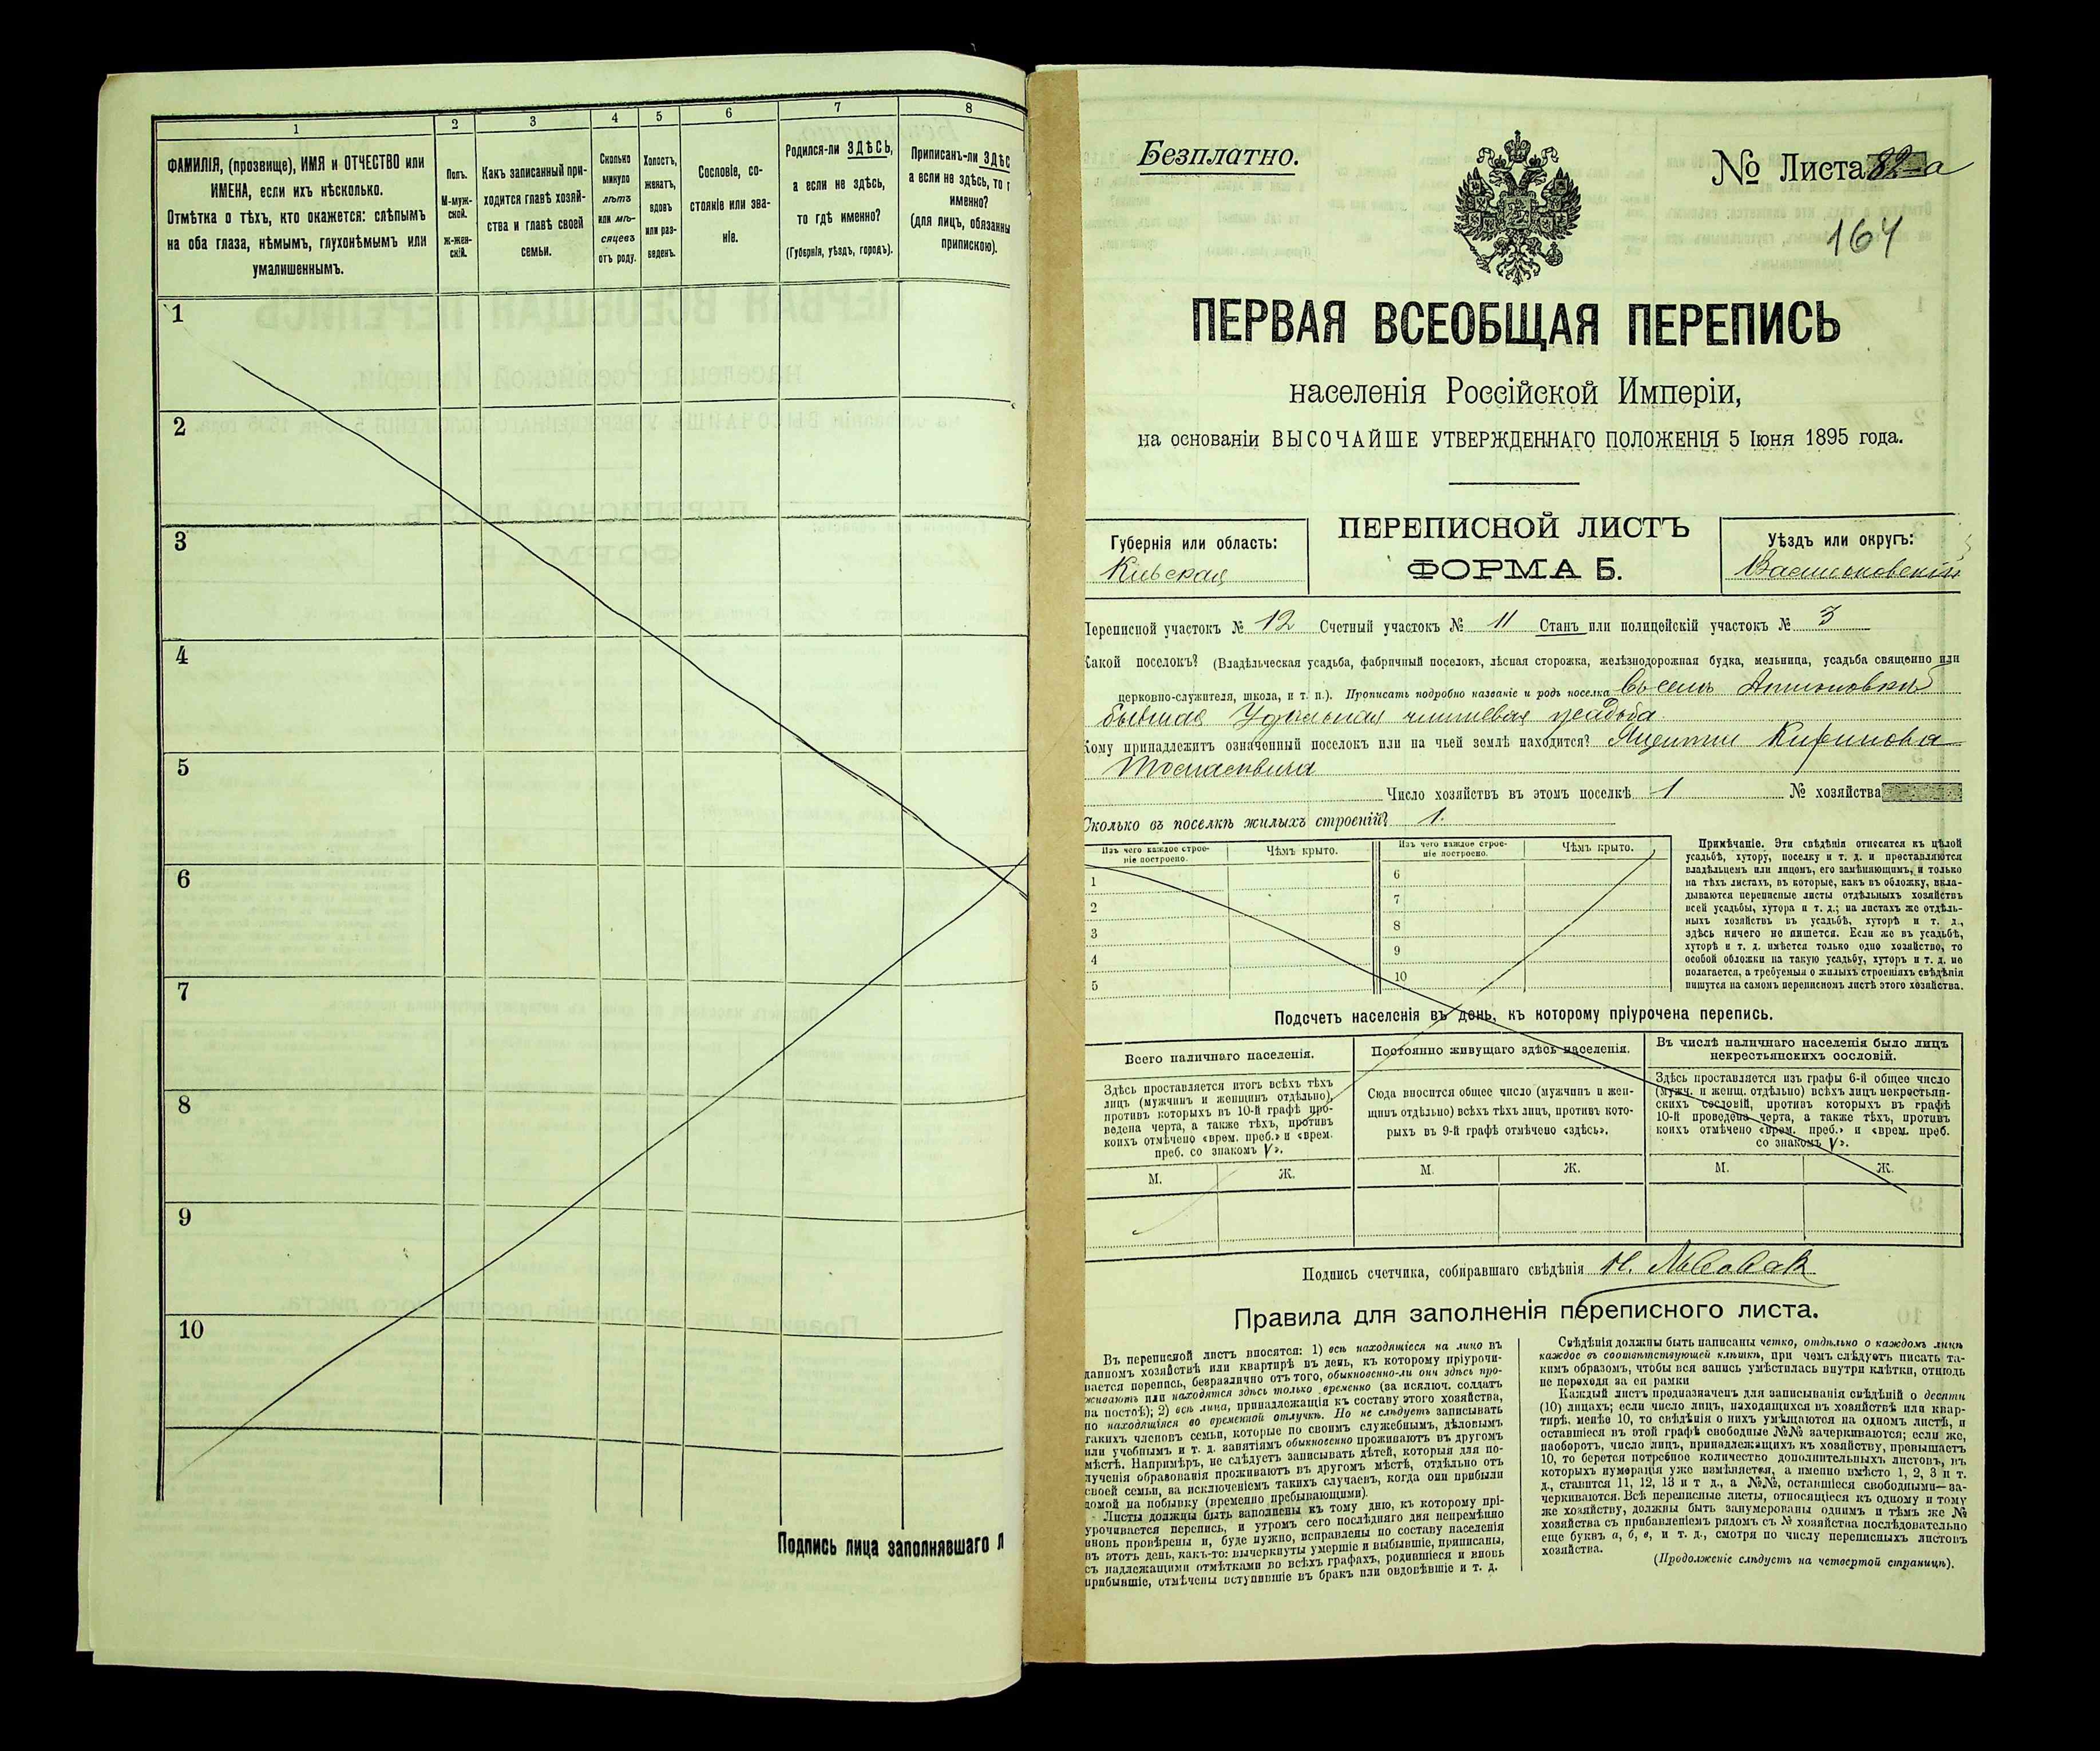 1
2
3
4
5
6
7
8
ФАМИЛІЯ, (прозвище), ИМЯ и ОТЧЕСТВО или
ИМЕНА, если ихъ нѣсколько.
Отмѣтка о тѣхъ, кто окажется: слѣпымъ
на оба глаза, нѣмымъ, глухонѣмымъ или
умалишеннымъ.
Полъ.
М-муж-
ской.
Ж-жен-
скій.
Какъ записанный при-
ходится главѣ хозяй-
ства и главѣ своей
семьи.
Сколько
минуло
лѣтъ
или мѣ-
сяцевъ
отъ роду.
Холостъ,
женатъ,
вдовъ
или раз-
веденъ.
Сословіе, со-
стояніе или зва-
ніе.
Родился-ли ЗДѢСЬ,
а если не здѣсь,
то гдѣ именно?
(Губернія, уѣздъ, городъ).
Приписанъ-ли ЗДѢС
а если не здѣсь, то г
именно?
(для лицъ, обязанны
припискою).
1
2
3
4
5
6
7
8
9
10
Подпись лица заполнявшаго Л
Безплатно.
№ Листа 82 а
164
ПЕРВАЯ ВСЕОБЩАЯ ПЕРЕПИСЬ
населенія Россійской Имперіи,
на основаніи ВЫСОЧАЙШЕ УТВЕРЖДЕННАГО ПОЛОЖЕНІЯ 5 Іюня 1895 года.
Губернія или область:
Кіевская
ПЕРЕПИСНОЙ ЛИСТЪ
ФОРМА Б.
Уѣздъ или округъ:
Васильковскій
Переписной участокъ № 12 Счетный участокъ № 11 Станъ или полицейскій участокъ № 3
Какой поселокъ? (Владѣльческая усадьба, фабричный поселокъ, лѣсная сторожка, желѣзнодорожная будка, мельница, усадьба священно или
церковно-служителя, школа, и т. п.). Прописать подробно названіе и родъ поселка Въ селѣ
бывшая чиншевая усадьба
Кому принадлежитъ означенный поселокъ или на чьей землѣ находится?
Число хозяйствъ въ этомъ поселкѣ 1 № хозяйства
Сколько въ поселкѣ жилыхъ строеній? 1.
Изъ чего каждое строе-
ніе построено.
Чѣмъ крыто.
Изъ чего каждое строе-
ніе построено.
Чѣмъ крыто.
1
2
3
4
5
6
7
8
9
10
Примѣчаніе. Эти свѣдѣнія относятся къ цѣлой
усадьбѣ, хутору, поселку и т. д. и проставляются
владѣльцемъ или лицомъ, его замѣняющимъ, и только
на тѣхъ листахъ, въ которые, какъ въ обложку, вкла-
дываются переписные листы отдѣльныхъ хозяйствъ
всей усадьбы, хутора и т. д.; на листахъ же отдѣль-
ныхъ хозяйствъ въ усадьбѣ, хуторѣ и т. д.,
здѣсь ничего не пишется. Если же въ усадьбѣ,
хуторѣ и т. д. имѣется только одно хозяйство, то
особой обложки на такую усадьбу, хуторъ и т. д. не
полагается, а требуемыя о жилыхъ строеніяхъ свѣдѣнія
пишутся на самомъ переписномъ листѣ этого хозяйства.
Подсчетъ населенія въ день, къ которому пріурочена перепись.
Всего наличнаго населенія.
Здѣсь проставляется итогъ всѣхъ тѣхъ
лицъ (мужчинъ и женщинъ отдѣльно),
противъ которыхъ въ 10-й графѣ про-
ведена черта, а также тѣхъ, противъ
коихъ отмѣчено «врем. преб.» и «врем.
преб. со знакомъ V».
Постоянно живущаго здѣсь населенія.
Сюда вносится общее число (мужчинъ и жен-
щинъ отдѣльно) всѣхъ тѣхъ лицъ, противъ кото-
рыхъ въ 9-й графѣ отмѣчено «здѣсь».
Въ числѣ наличнаго населенія было лицъ
некрестьянскихъ сословій.
Здѣсь проставляется изъ графы 6-й общее число
(мужч. и женщ. отдѣльно) всѣхъ лицъ некрестьян-
скихъ сословій, противъ которыхъ въ графѣ
10-й проведена черта, а также тѣхъ, противъ
коихъ отмѣчено «врем. преб.» и «врем. преб.
со знакомъ V».
М.
Ж.
М.
Ж.
М.
Ж.
Подпись счетчика, собиравшаго свѣдѣнія
Правила для заполненія переписного листа.
Въ переписной листъ вносятся: 1) всѣ находящіеся на лицо въ
данномъ хозяйствѣ или квартирѣ въ день, къ которому пріурочи-
вается перепись, безразлично отъ того, обыкновенно-ли они здѣсь про-
живаютъ или находятся здѣсь только временно (за исключ. солдатъ
на постоѣ); 2) всѣ лица, принадлежащія къ составу этого хозяйства,
но находящіяся во временной отлучкѣ. Но не слѣдуетъ записывать
такихъ членовъ семьи, которые по своимъ служебнымъ, дѣловымъ
или учебнымъ и т. д. занятіямъ обыкновенно проживаютъ въ другомъ
мѣстѣ. Напримѣръ, не слѣдуетъ записывать дѣтей, которыя для по-
лученія образованія проживаютъ въ другомъ мѣстѣ, отдѣльно отъ
своей семьи, за исключеніемъ такихъ случаевъ, когда они прибыли
домой на побывку (временно пребывающими).
Листы должны быть заполнены къ тому дню, къ которому прі-
урочивается перепись, и утромъ сего послѣдняго дня непремѣнно
вновь провѣрены и, буде нужно, исправлены по составу населенія
въ этотъ день, какъ-то: вычеркнуты умершіе и выбывшіе, приписаны,
съ надлежащими отмѣтками во всѣхъ графахъ, родившіеся и вновь
прибывшіе, отмѣчены вступившіе въ бракъ или овдовѣвшіе и т. д.
Свѣдѣнія должны быть написаны четко, отдѣльно о каждомъ лицѣ
каждое въ соотвѣтствующей клѣткѣ, при чемъ слѣдуетъ писать та-
кимъ образомъ, чтобы вся запись умѣстилась внутри клѣтки, отнюдь
не переходя за ея рамки
Каждый листъ предназначенъ для записыванія свѣдѣній о десяти
(10) лицахъ; если число лицъ, находящихся въ хозяйствѣ или квар-
тирѣ, менѣе 10, то свѣдѣнія о нихъ умѣщаются на одномъ листѣ, и
оставшіеся въ этой графѣ свободные №№ зачеркиваются; если же,
наоборотъ, число лицъ, принадлежащихъ къ хозяйству, превышаетъ
10, то берется потребное количество дополнительныхъ листовъ, въ
которыхъ нумерація уже измѣняется, а именно вмѣсто 1, 2, 3 и т.
д., ставится 11, 12, 13 и т д., а №№, оставшіеся свободными—за-
черкиваются. Всѣ переписные листы, относящіеся къ одному и тому
же хозяйству, должны быть занумерованы однимъ и тѣмъ же №
хозяйства съ прибавленіемъ рядомъ съ № хозяйства послѣдовательно
еще буквъ а, б, в, и т. д., смотря по числу переписныхъ листовъ
хозяйства.
(Продолженіе слѣдуетъ на четвертой страницѣ).